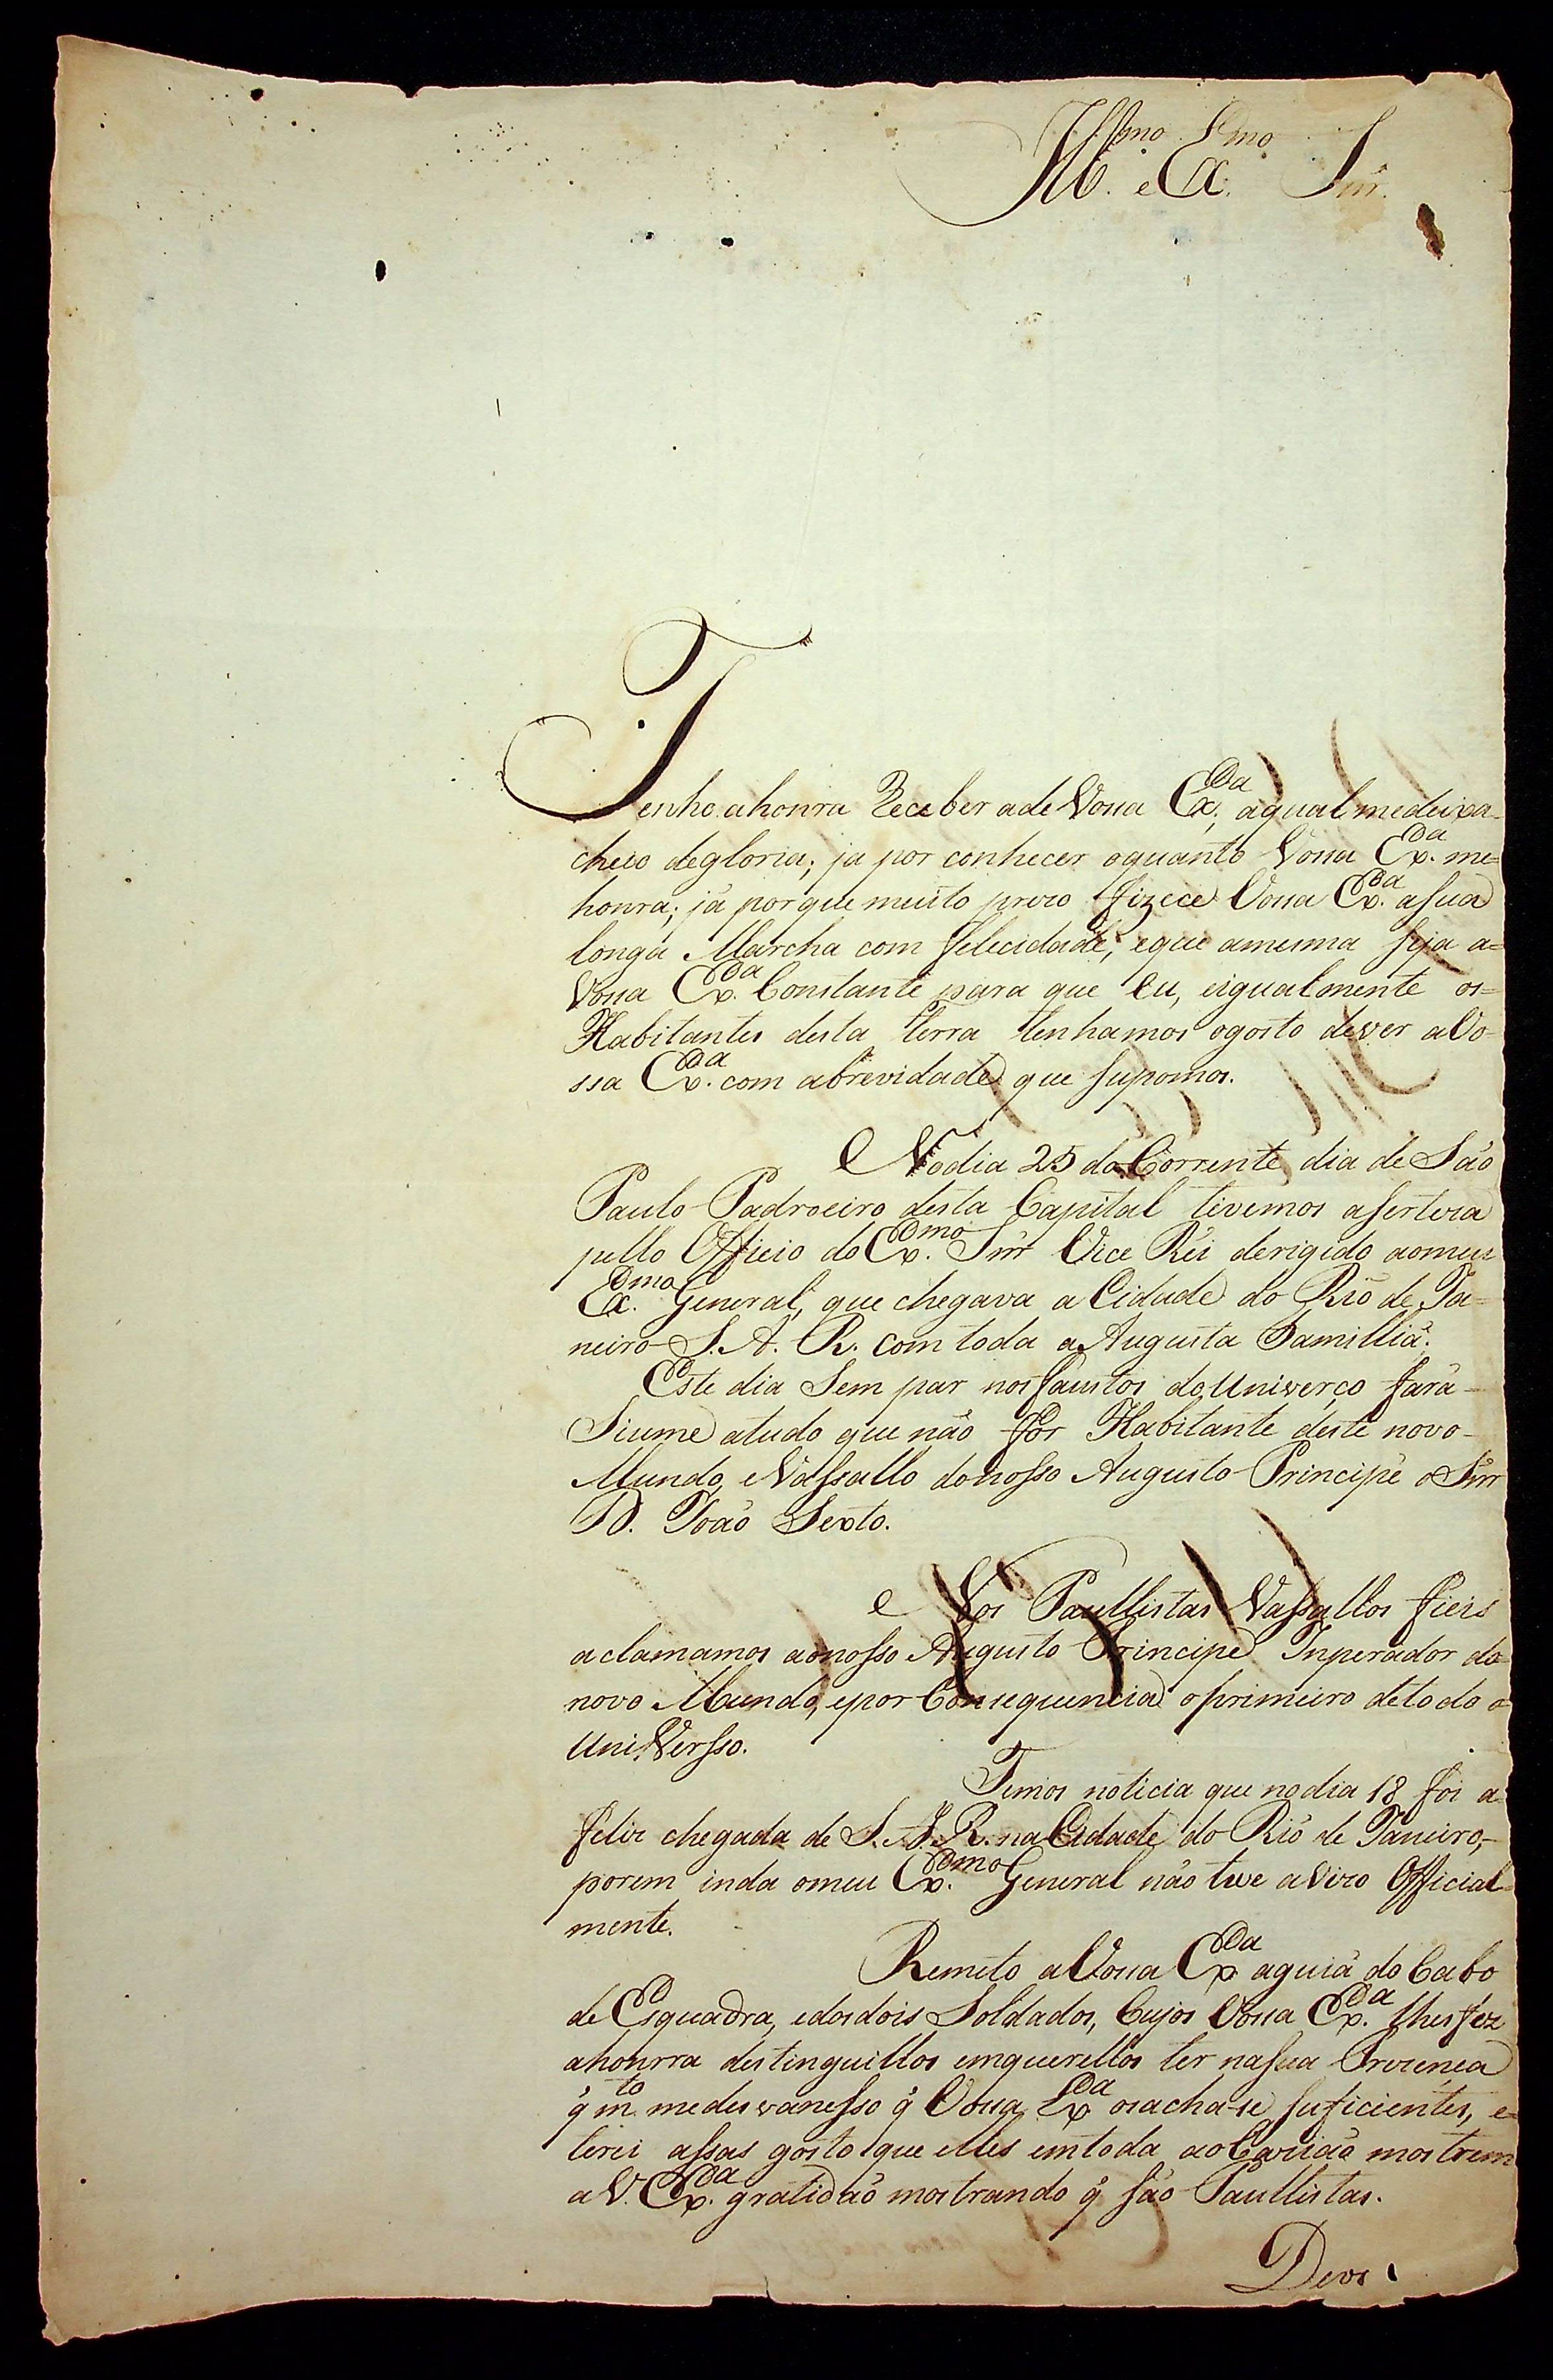 Ill.mo e Ex.mo Snr.
Tenho ahonra Receber ade Vossa Ex.a, aqual medeixa
cheio degloria; ja por conhecer oquanto Vossa Ex.a me=
honra; já porque muito prezo fizece Vossa Ex.a asua
longa Marcha com felecidade, eque amesma seja a=
Vossa Ex.a Constante para que Eu, eigualmente os=
Habitantes desta terra tenhamos ogosto dever aVo-
ssa Ex.a com abrevidade que supomos.
Nodia 25 do Corrente dia de São
Paulo Padroeiro desta Capital tivemos aserteza
pello Officio do Ex.mo Snr Vice Rei derigido aomeu
Ex.mo General, que chegava a Cidade do Rio de Ja=
neiro S. A. R. com toda a Augusta Famillia.
Este dia Sem par nos faustos do Univerço fará
Siume atudo que não for Habitante deste novo
Mundo, eVassallo donosso Augusto Principe o Snr
D. João Sexto.
Nos Paullistas Vassallos fieis
aclamamos aonosso Augusto Principe Inperador do
novo Mundo, epor Consequencia oprimeiro detodo o
UniVersso.
Temos noticia que nodia 18 foi a
feliz chegada de S. A. R. na Cidade do Rio de Janeiro,
porem inda omeu Ex.mo General não teve aVizo Official=
mente.
Remeto aVossa Ex.a aguia do Cabo
de Esquadra, edosdois Soldados, Cujos Vossa Ex.a lhesfez
ahonrra destinguillos emquerellos ter nasua Prezença
q̃ m.to medesvanesso q̃ Vossa Ex.a osacha-se suficientes, e
terei assas gosto que elles emtoda aoCazião mostrem
aV. Ex.a gratidão mostrando q̃ são Paullistas.
Deos